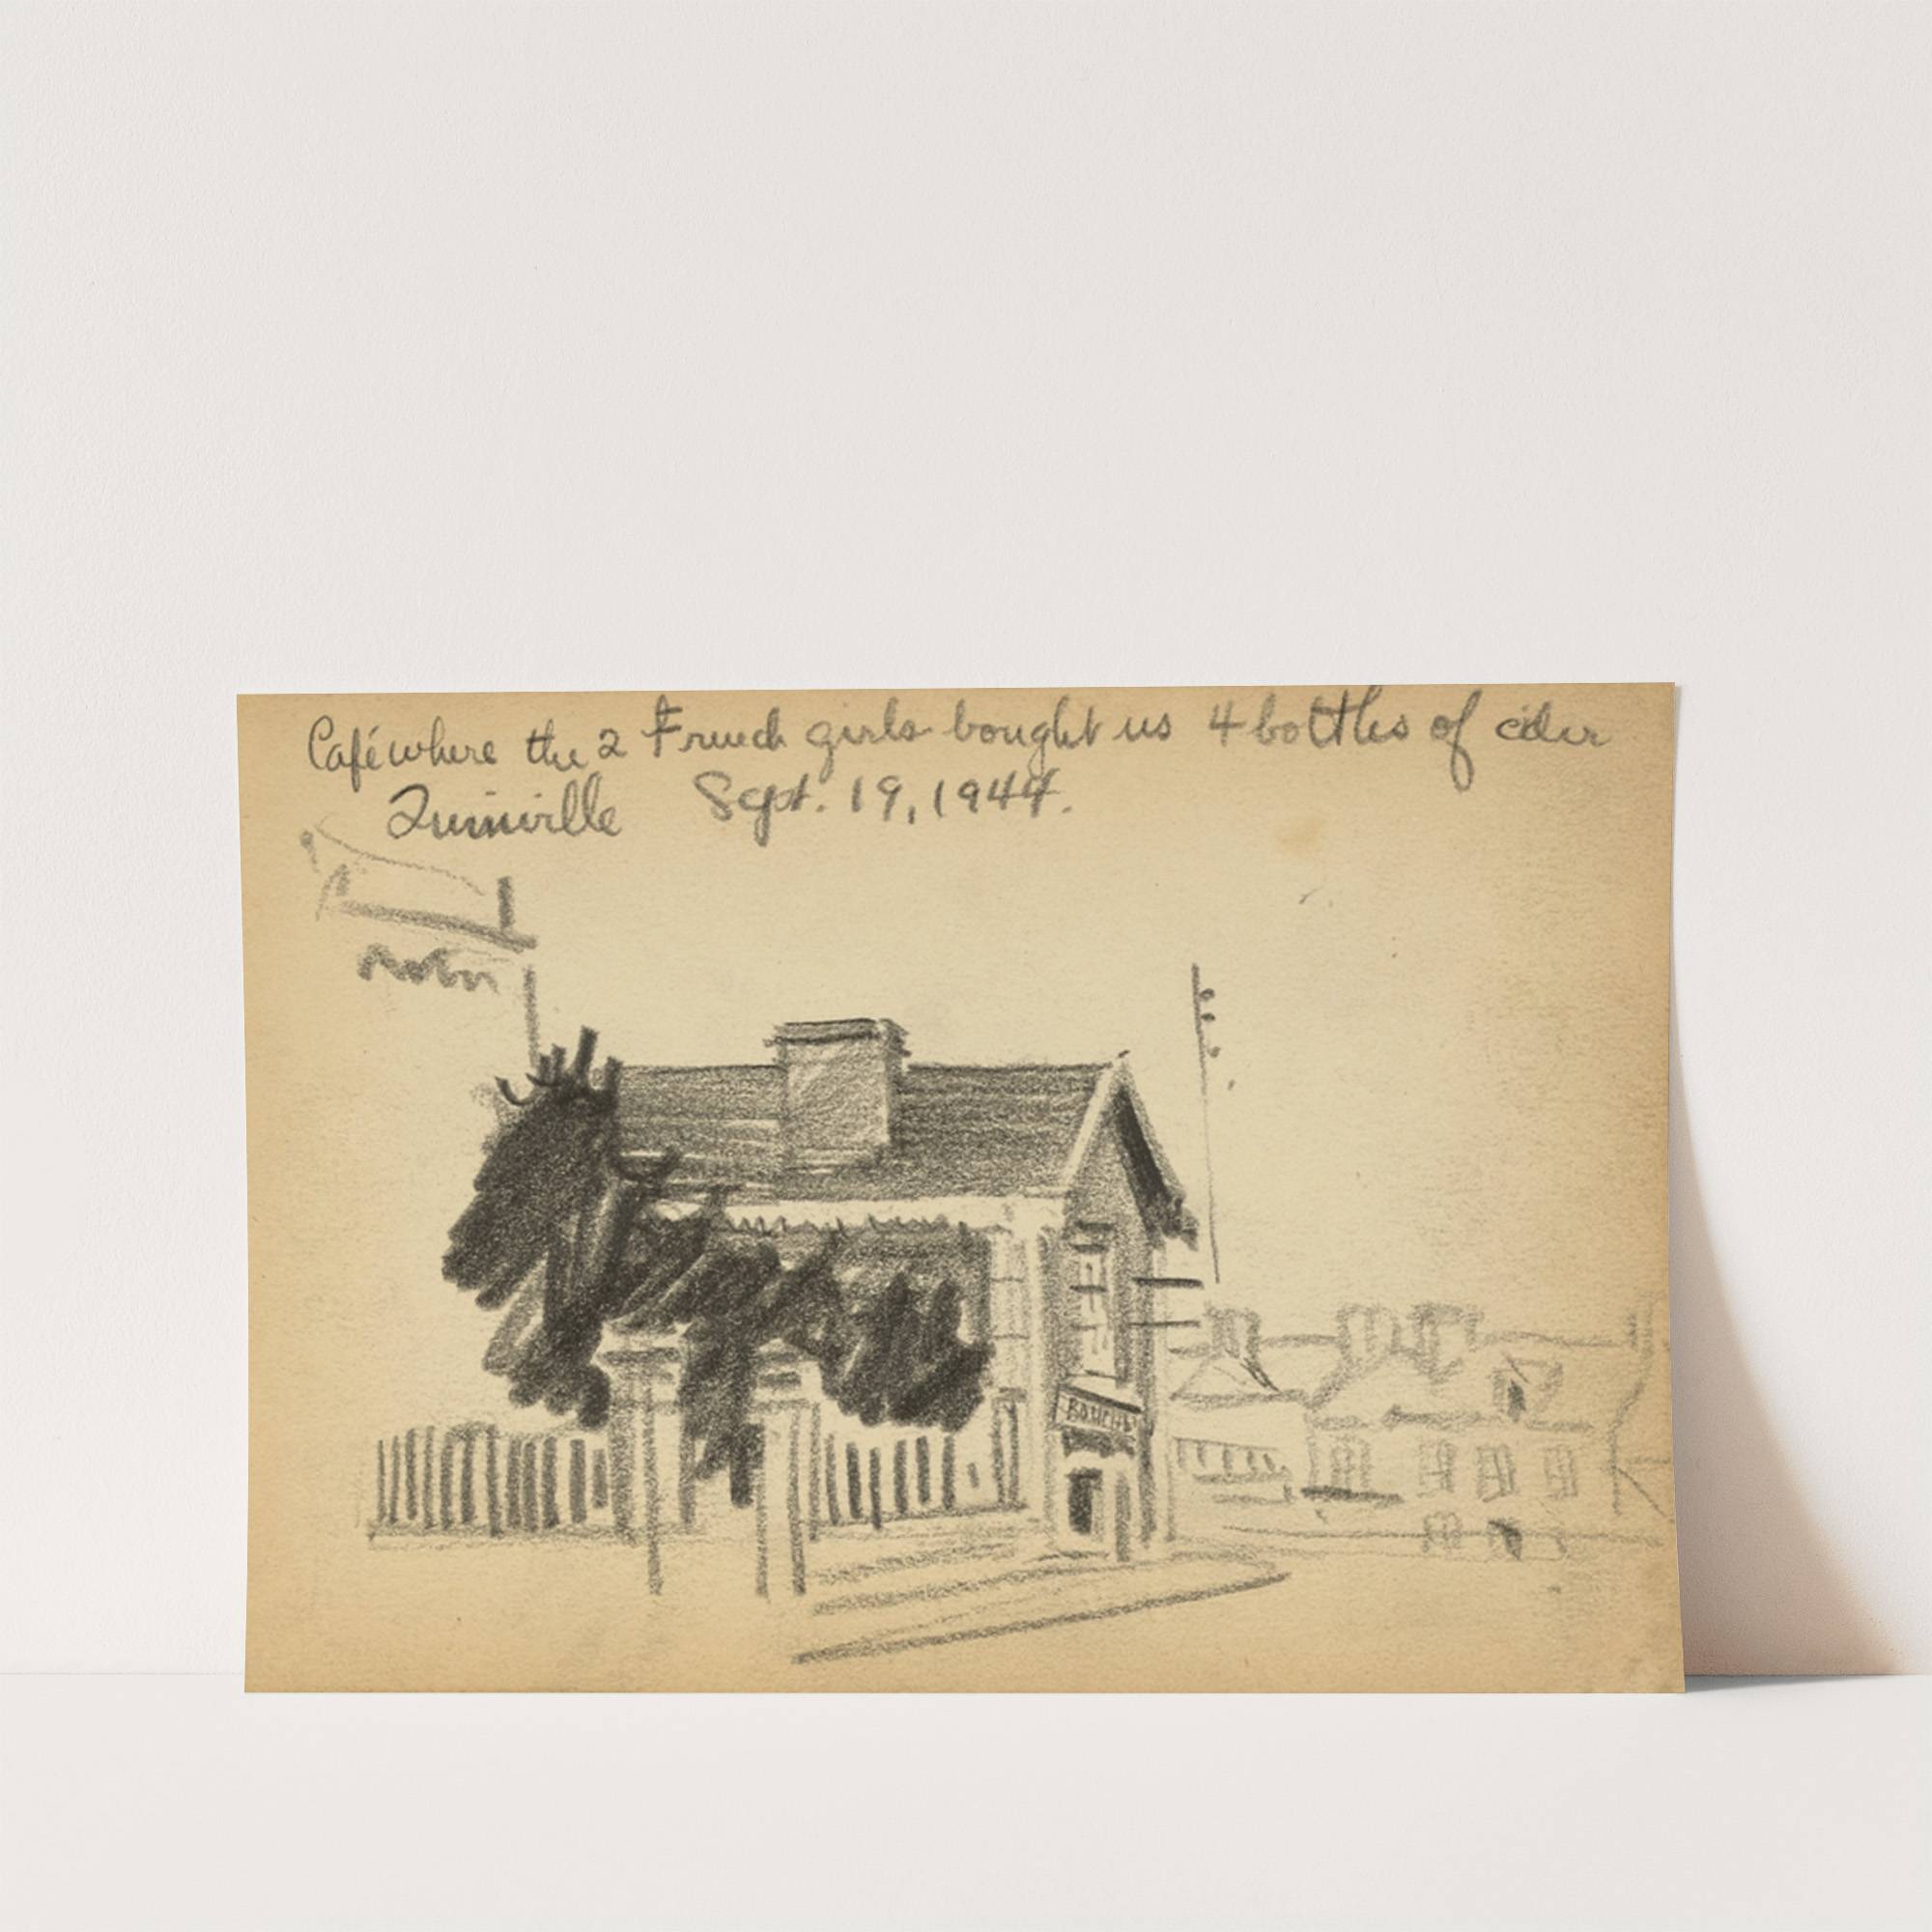 Café where the 2 French girls bought us 4 bottles of cider
Quinéville Sept. 19, 1944.